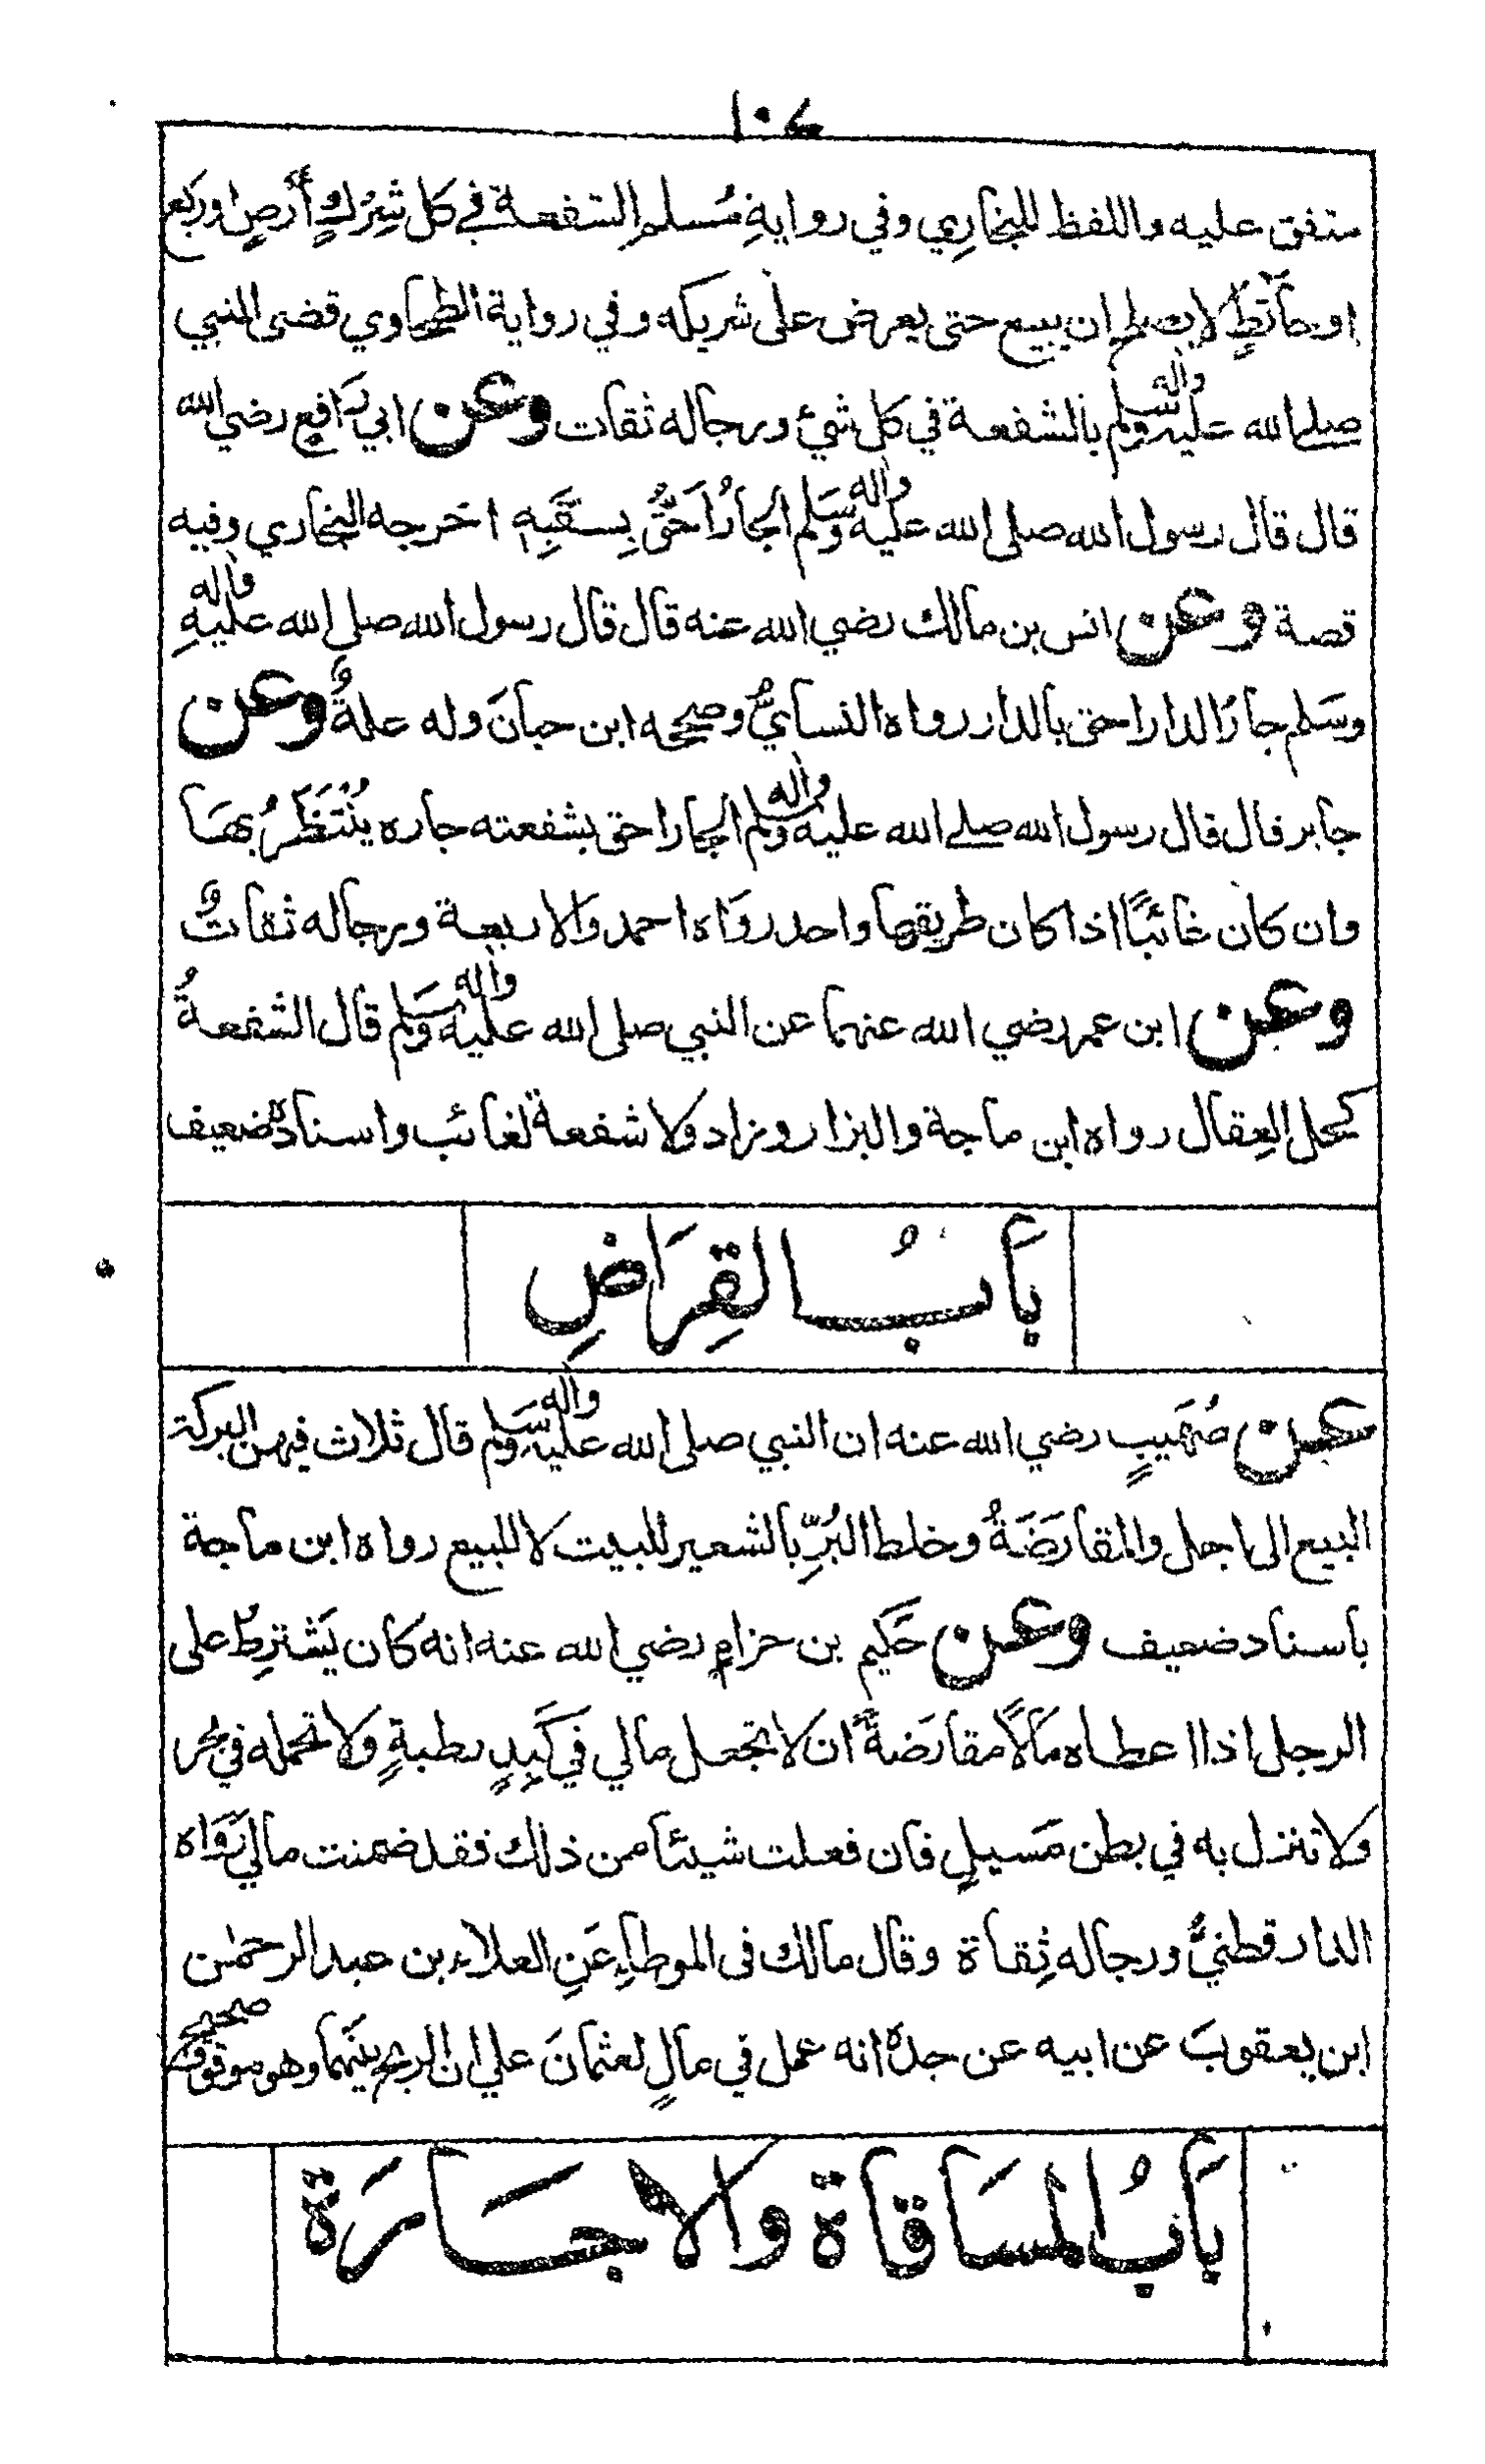 ١٠٤
متفق عليه واللفظ للبخارِي وفي روايةِ مُسلم الشفعة في كل شِرْكٍ أرضٍ او ربع
او حائطٍ لا يصلح ان يبيع حتى يعرض على شريكه وفي رواية الطحاوي قضى النبي
صلے الله عليه واٰله وسلم بالشفعة في كل شيئ ورجاله ثقات وعن ابي رَافِعٍ رضي الله
قال قال رسول الله صلى الله عليه واٰله وَسَلم الجارُ اَحَقُّ بِسقَبِهٖ اخرجه البخاري وفيه
قصة وعن انس بن مالك رضي الله عنه قال قال رسول الله صلى الله عليهِ واٰله
وسَلم جارُ الدار احق بالدار رواه النسايُّ وصححه ابن حبانَ وله علةٌ وعن
جابر قال قال رسول الله صلے الله عليه واٰله وسلم الجار احق بشفعته جاره يُنْتَظَرُ بهَا
وان كان غائبًا اذا كان طريقهما واحد روَاه احمد والاربعة ورجاله ثقاتٌ
وعن ابن عمر رضي الله عنهما عن النبي صلى الله عليه واٰله وَسَلم قال الشفعةُ
كحل العِقال رواه ابن ماجة والبزار وزاد ولا شفعة لغائب واسناده ضعيف
بَابُ القِرَاضِ
عن صُهَيبٍ رضي الله عنه ان النبي صلى الله عليه واٰله وسَلم قال ثلاث فيهن البركة
البيع الى اجل والمقارَضَةُ وخلط البُرِّ بالشعير للبيت لا للبيع رواه ابن ماجة
باسناد ضعيف وعن حَكيم بن حزامٍ رضي الله عنه انه كان يَشترِطُ على
الرجل اذا اعطاه مَالًا مقارَضةً ان لا تجعل مالي في كَبِدٍ رطبةٍ ولا تحمله في بحر
ولا تنزل به في بطن مَسيلٍ فان فعلت شيئًا من ذلك فقد ضمنت مالي رَوَاه
الدارقطنيُّ ورجاله ثِقاة وقال مالك فى الموطاءِ عَنِ العلاء بن عبد الرحمٰن
ابن يعقوبَ عن ابيه عن جدهٖ انه عمل في مالٍ لعثمانَ علي ان الربح بينَهما وهو موقوف صحيح
بَابُ المسَاقاة وَالاجَارَة